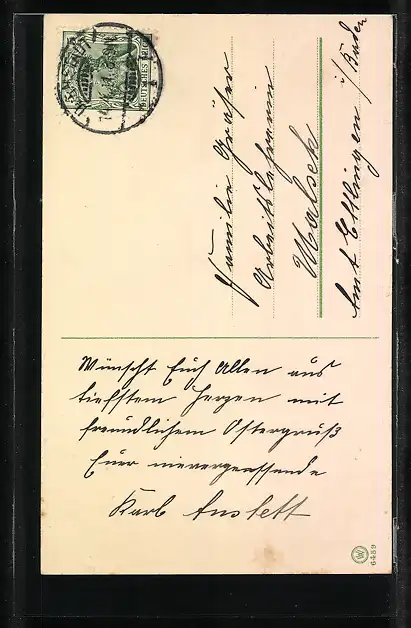 Familie Gräser
Arbeitslehrerin
Malsch
Amt Ettlingen i/Baden
Wünscht Euch Allen aus
tiefstem Herzen mit
freundlichem Ostergruß
Euer
Karl Anstett
6459